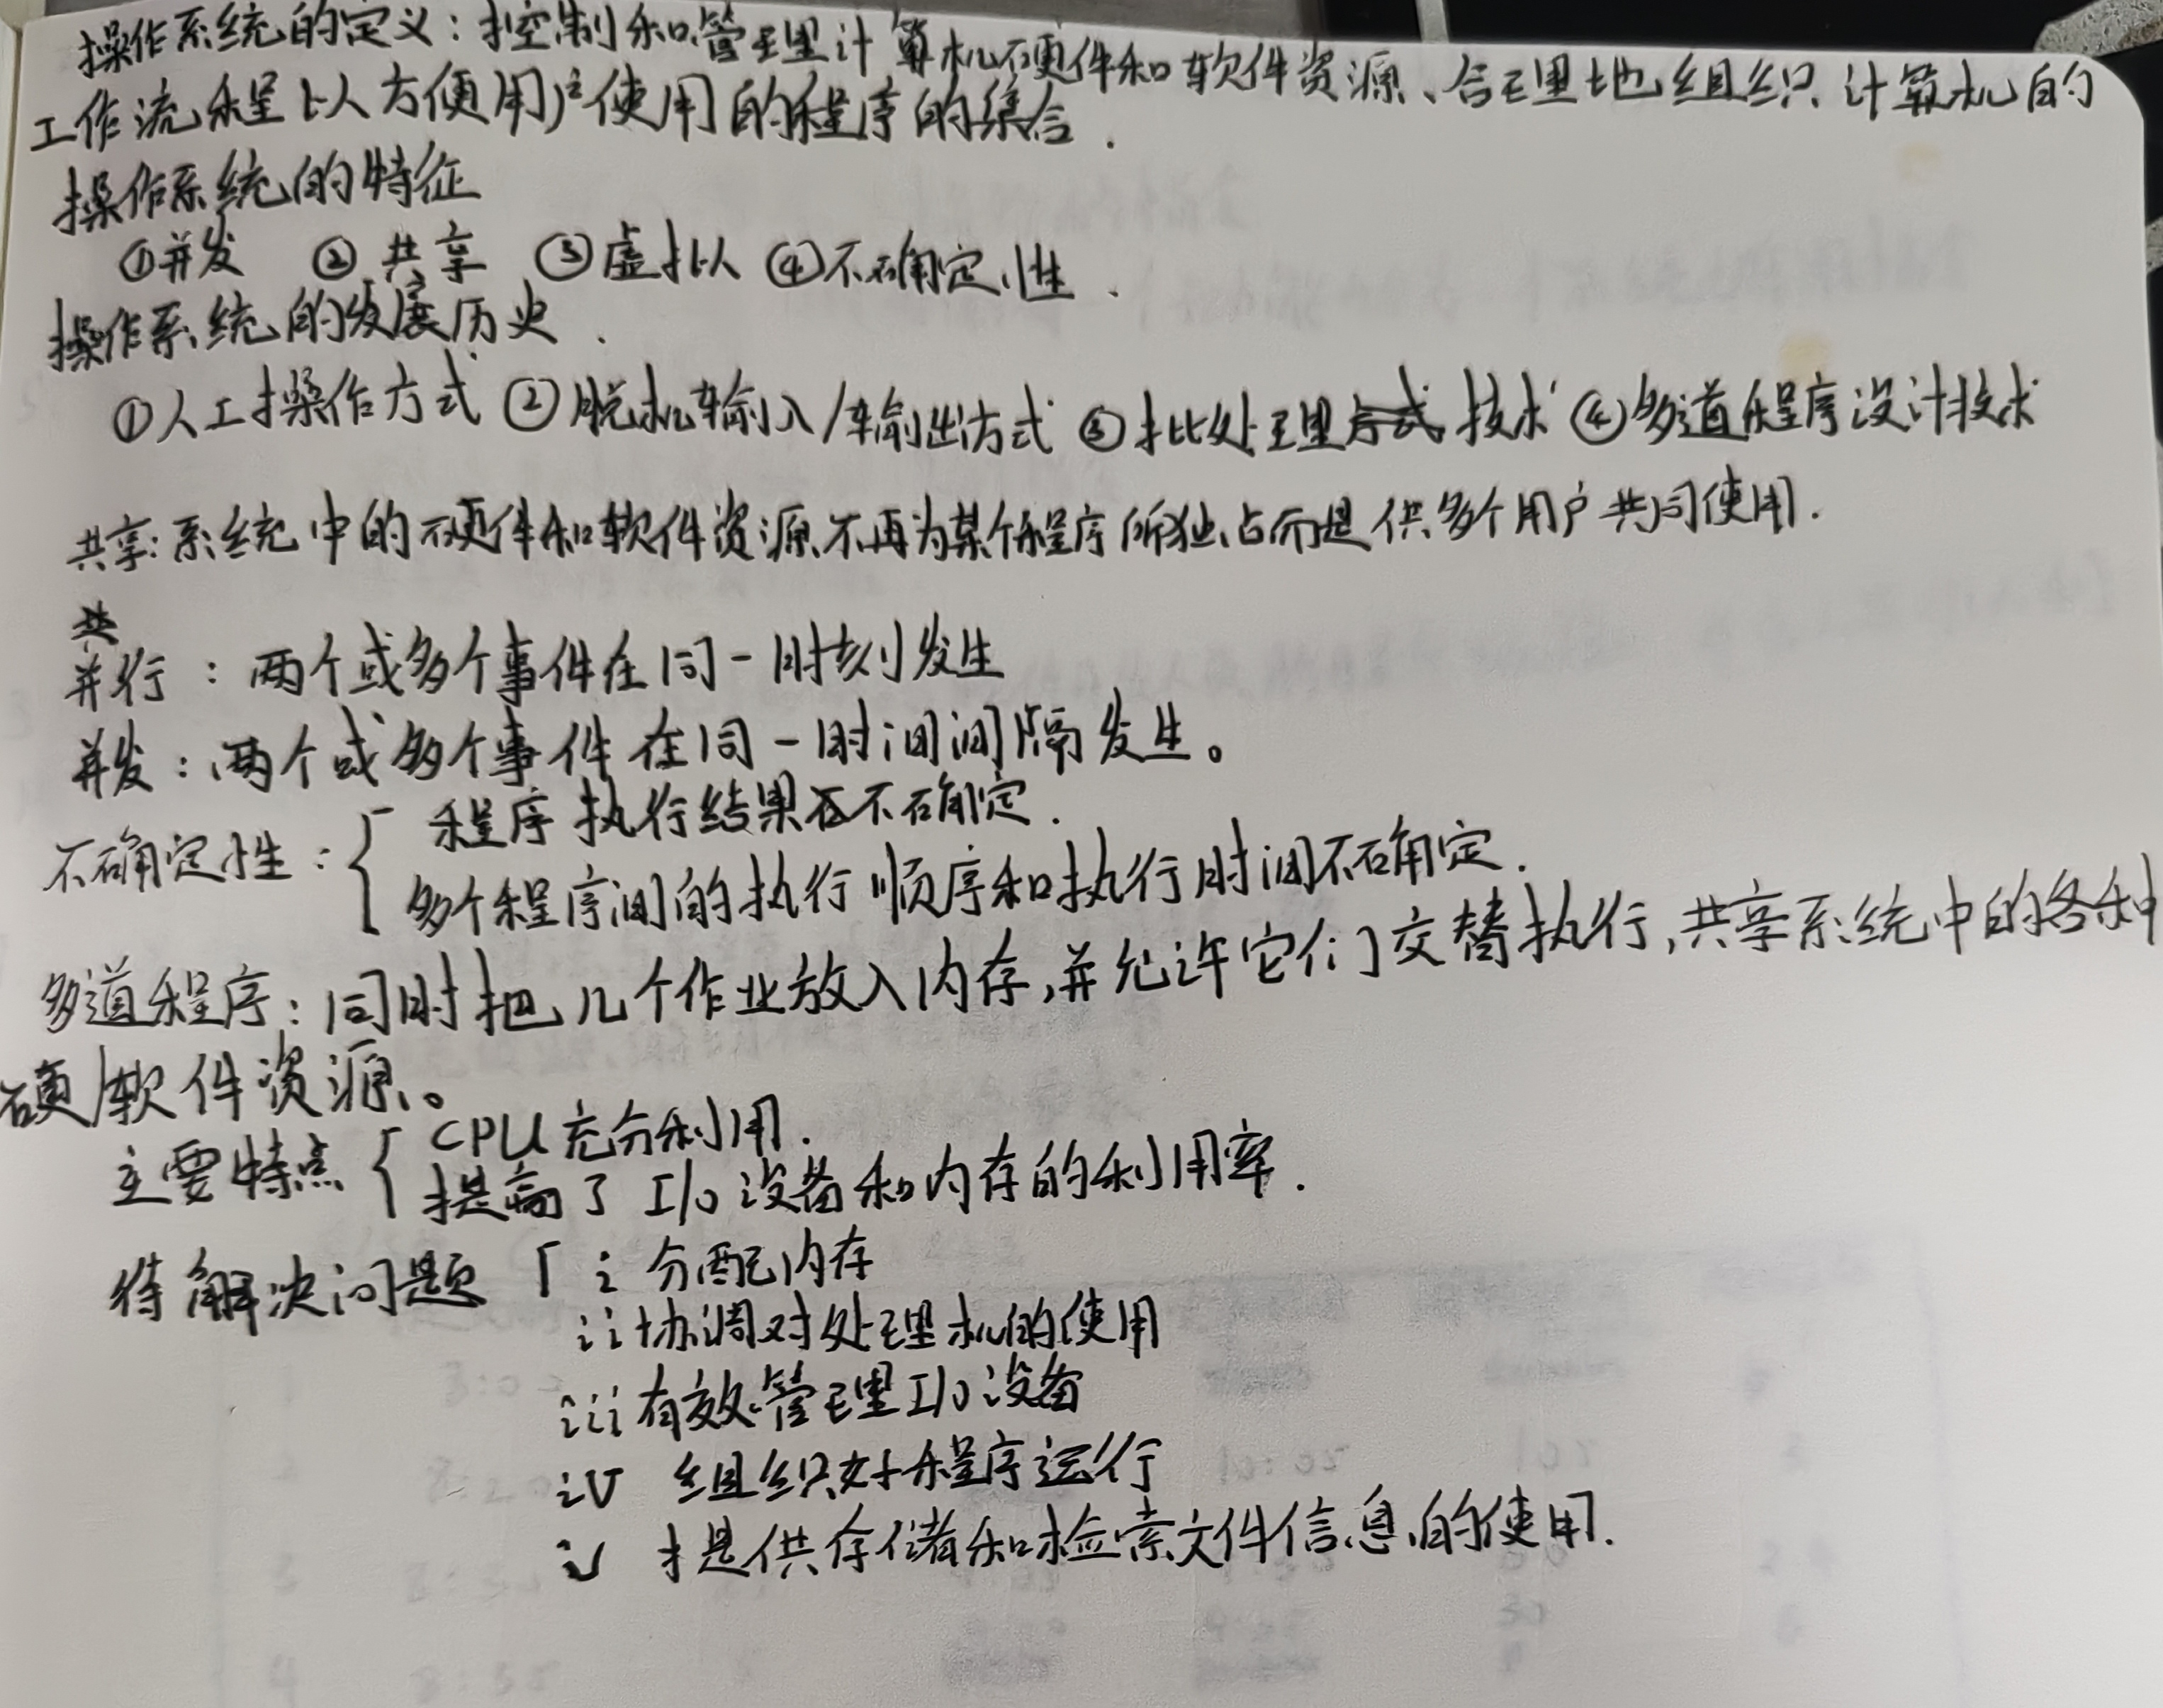 操作系统的定义：控制和管理计算机硬件和软件资源、合理地组织计算机的
工作流程以方便用户使用的程序的集合.
操作系统的特征
①并发 ②共享 ③虚拟 ④不确定性.
操作系统的发展历史.
①人工操作方式 ②脱机输入/输出方式 ③批处理方式技术 ④多道程序设计技术
共享:系统中的硬件和软件资源不再为某个程序所独占而是供多个用户共同使用.
共
并行：两个或多个事件在同一时刻发生
并发：两个或多个事件在同一时间间隔发生。
不确定性：{ 程序执行结果不确定.
多个程序间的执行顺序和执行时间不确定.
多道程序：同时把几个作业放入内存,并允许它们交替执行,共享系统中的各种
硬/软件资源。
主要特点{ CPU充分利用.
提高了I/O设备和内存的利用率.
待解决问题「 i 分配内存
ii 协调对处理机的使用
iii 有效管理I/O设备
iv 组织好程序运行
v 提供存储和检索文件信息的使用.